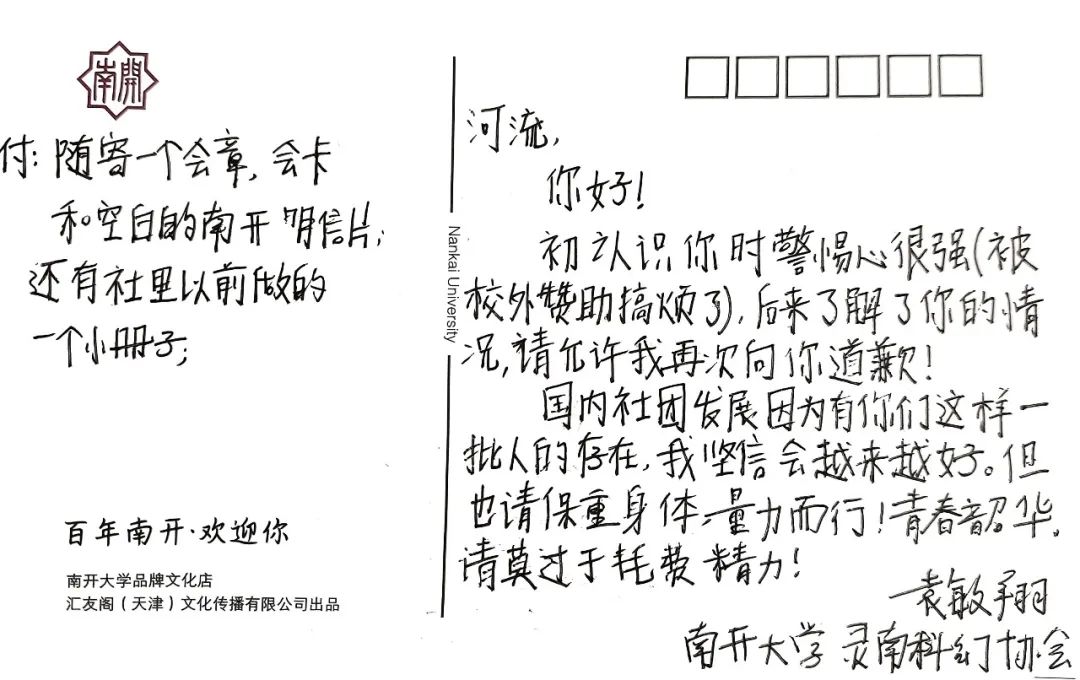 南開
付：随寄一个会章，会卡
和空白的南开明信片；
还有社里以前做的
一个小册子；
百年南开·欢迎你
南开大学品牌文化店
汇友阁（天津）文化传播有限公司出品
Nankai University
河流，
你好！
初认识你时警惕心很强（被
校外赞助搞烦了），后来了解了你的情
况，请允许我再次向你道歉！
国内社团发展因为有你们这样一
批人的存在，我坚信会越来越好。但
也请保重身体，量力而行！青春韶华，
请莫过于耗费精力！
袁敏翔
南开大学 灵南科幻协会